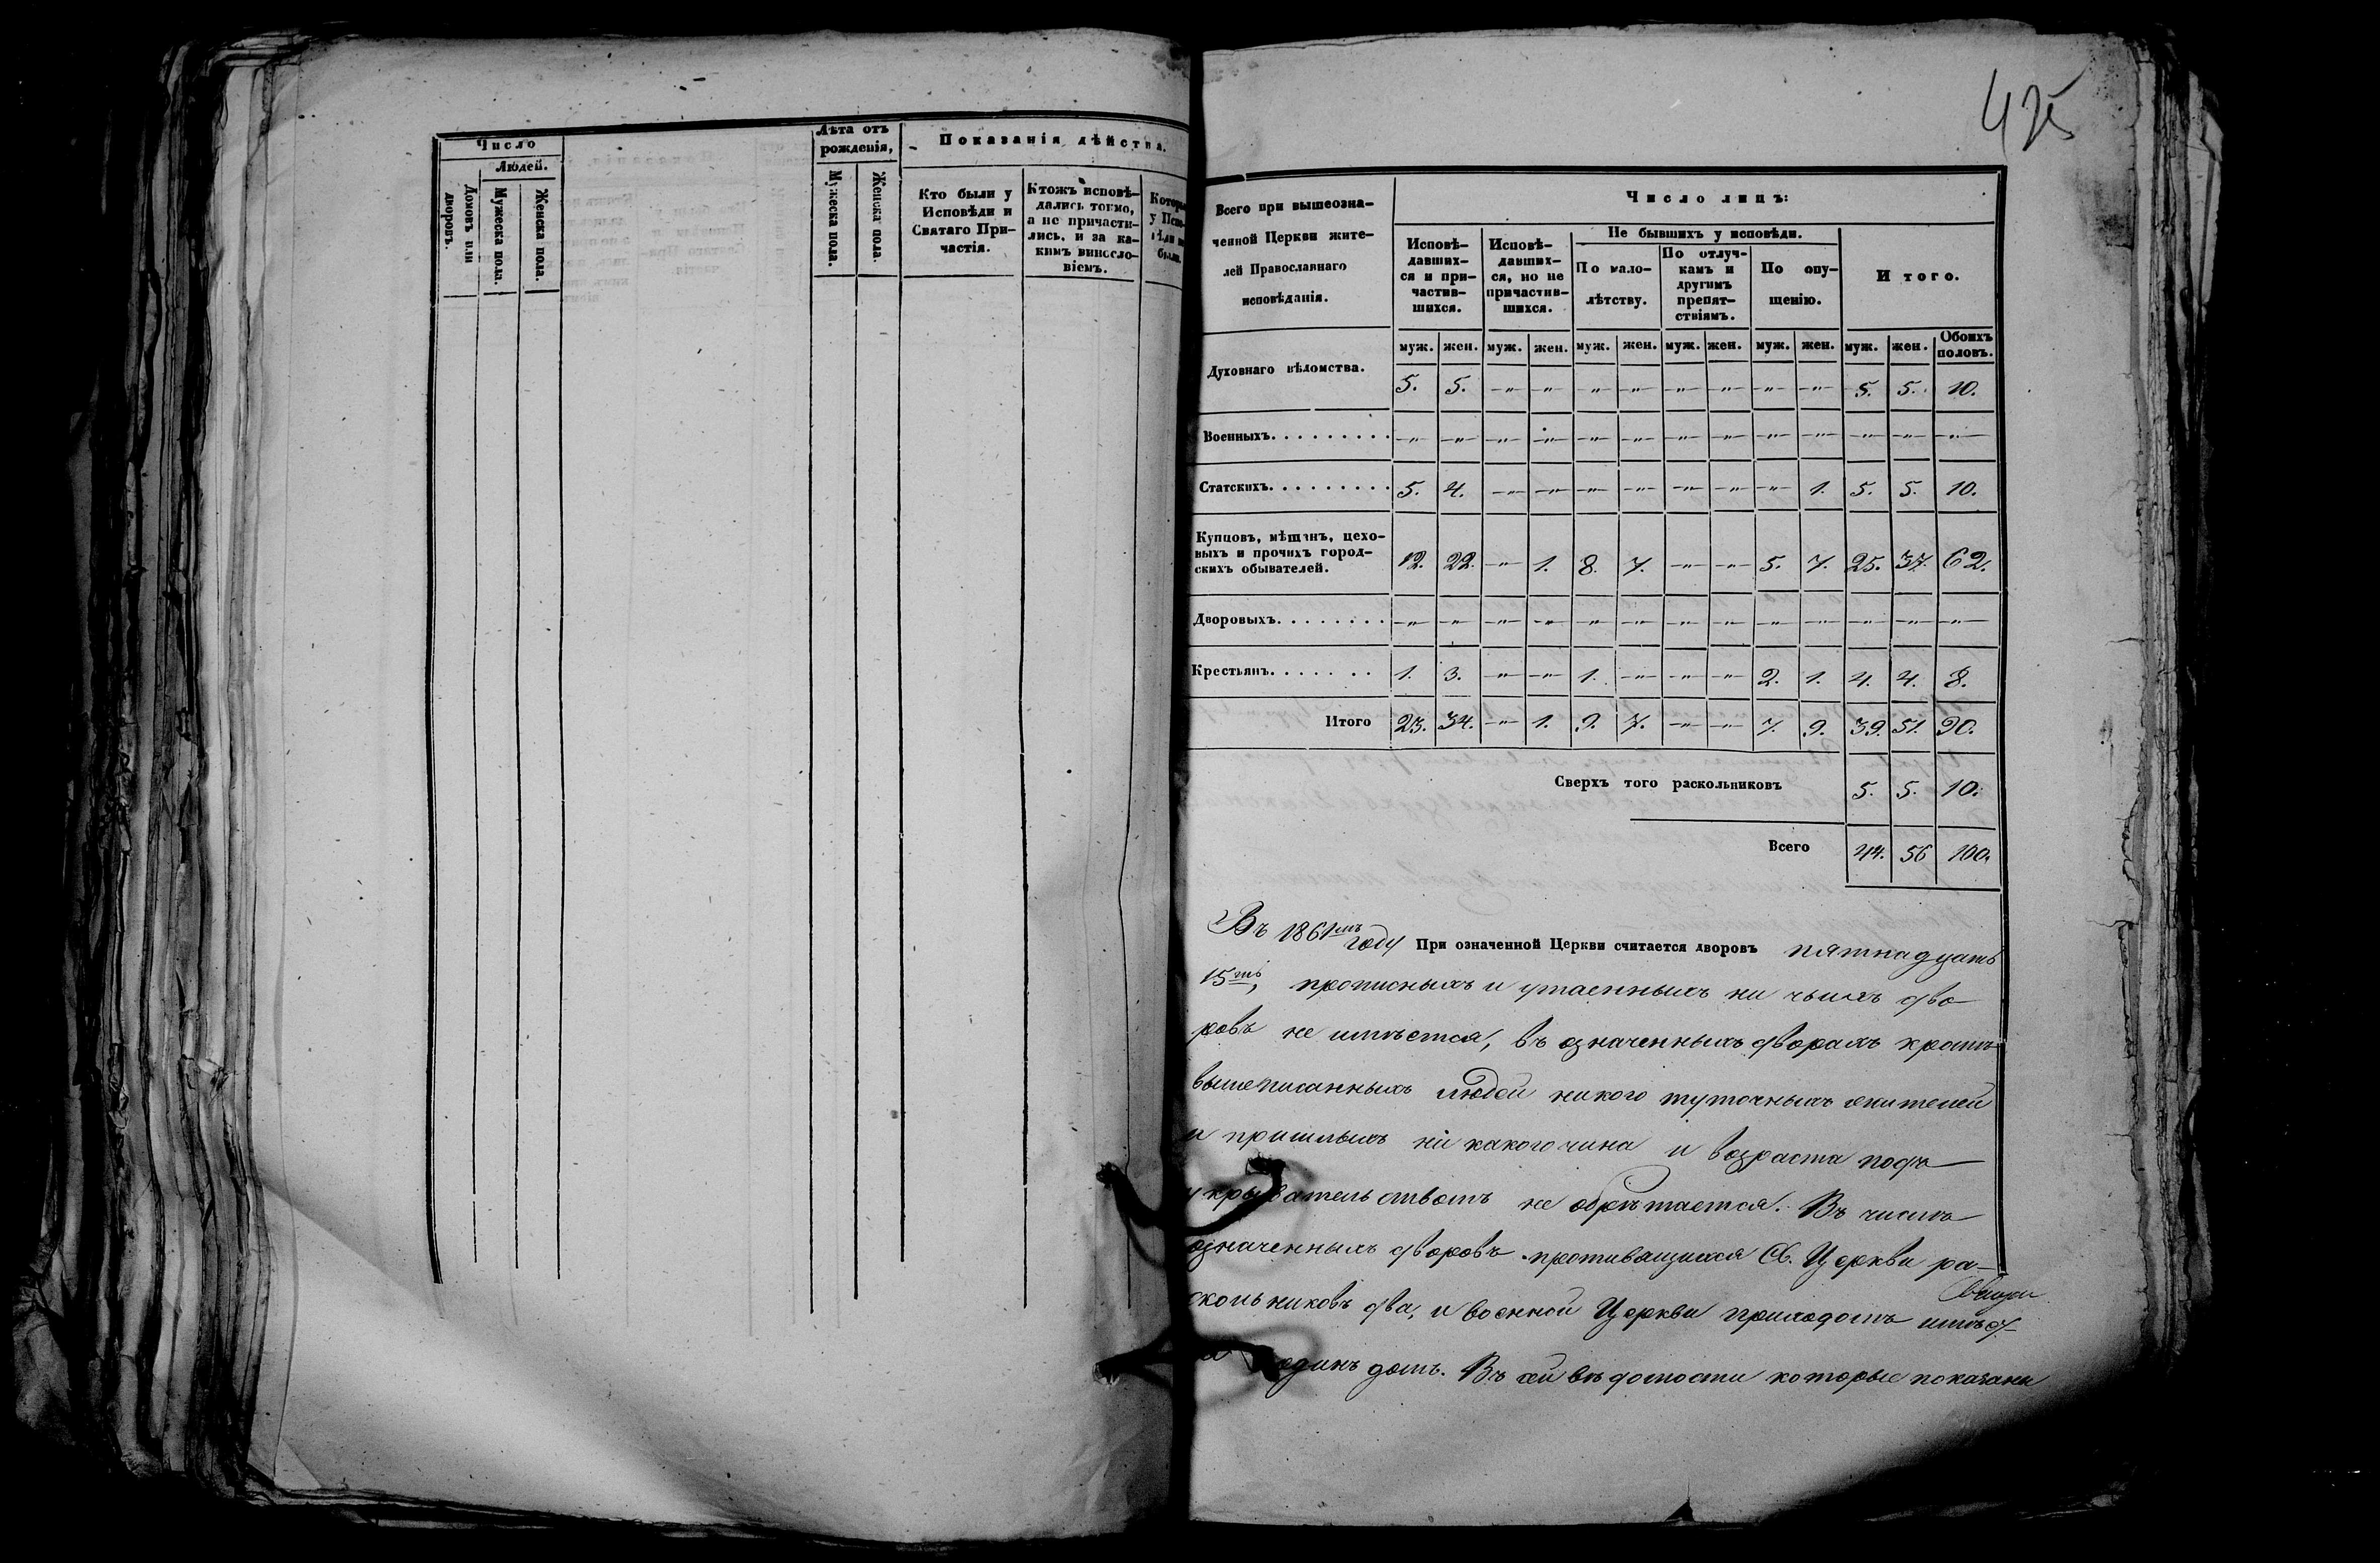 Число
Людей.
Домовъ или дворовъ.
Мужеска пола.
Женска пола.
Лѣта отъ рожденія,
Мужеска пола.
Женска пола.
Показанія дѣйства.
Кто были у
Исповѣди и
Святаго При-
частія.
Ктожъ исповѣ-
дались токмо,
а не причасти-
лись, и за ка-
кимъ винсло-
віемъ.
Которы
у Испо-
вѣди не
были.
475
Всего при вышеозна-
ченной Церкви жите-
лей Православнаго
исповѣданія.
Число лицъ:
Исповѣ-
давших-
ся и при-
частив-
шихся.
Исповѣ-
давших-
ся, но не
причастив-
шихся.
Не бывшихъ у исповѣди.
По мало-
лѣтству.
По отлуч-
камъ и
другимъ
препят-
ствіямъ.
По опу-
щенію.
Итого.
муж. жен. муж. жен. муж. жен. муж. жен. муж. жен. муж. жен. Обоихъ половъ.
Духовнаго вѣдомства. 5. 5. —"— —"— —"— —"— —"— —"— —"— —"— 5. 5. 10.
Военныхъ. . . . . . . . . —"— —"— —"— —"— —"— —"— —"— —"— —"— —"— —"— —"— —"—
Статскихъ. . . . . . . . . 5. 4. —"— —"— —"— —"— —"— —"— —"— 1. 5. 5. 10.
Купцовъ, мѣщанъ, цехо-
выхъ и прочихъ город-
скихъ обывателей. 12. 22. —"— 1. 8. 7. —"— —"— 5. 7. 25. 37. 62.
Дворовыхъ. . . . . . . . —"— —"— —"— —"— —"— —"— —"— —"— —"— —"— —"— —"— —"—
Крестьянъ. . . . . . . 1. 3. —"— —"— 1. —"— —"— —"— 2. 1. 4. 4. 8.
Итого 23. 34. —"— 1. 9. 7. —"— —"— 7. 9. 39. 51. 90.
Сверхъ того раскольниковъ 5. 5. 10.
Всего 44. 56 100.
Въ 1861мъ году При означенной Церкви считается дворовъ пятнадцать
15ть, прописныхъ и утаенныхъ ни чьихъ дво-
ровъ не имѣется, въ означенныхъ дворахъ кромѣ
вышеписанныхъ людей никого туточныхъ жителей
и пришлыхъ ни какого чина и возраста подъ
укрывательствомъ не обрѣтается. Въ числѣ
означенныхъ дворовъ противящихся Св. Церкви ра-
скольниковъ два, и военной Церкви приходомъ
одинъ домъ. Въ сей вѣдомости которые показаны